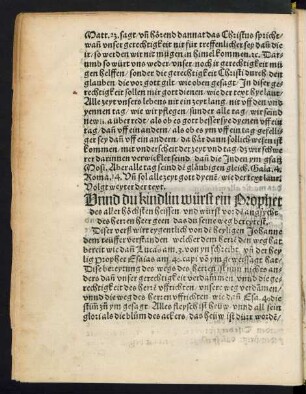 Matt. 23. sagt. vñ hörend dannat das Christus spriche
wañ unser gerechtigkeit nit für treffenlicher sey dañ die
ir/ so werden wir nit mügen in himel kommen. ꝛc. Dar
umb so würt uns weder unser noch ir gerechtigkeit mü
gen helffen/ sonder die gerechtigkeit Christi durch den
glauben/ die vor got gilt wie oben gesagt. In diser ge
rechtigkeit sollen mir gott dienen wie der text hye laut/
Alle zeyt unsers lebens nit ein zeyt lang/ nit uff den und
yennen tag/ wie wir pflegen/ sunder alle tag/ wir sind
newlich über redt/ als ob es gott baß gefiel uff ein
tag/ dañ uff ein andern/ als ob es ym uff ein tag geselli
ger sey dañ uff ein andern/ da här dann sölich wesen ist
kommen/ mit underscheit der zeyt und tag/ dz wir schwe
rer darinnen verwickelt seind/ dañ die Juden ym gsatz
Mosi. Aber alle tag seind dē gläubigen gleich. Gala. 4.
Roma. 14. Uñ sol alle zeyt gott dyenē/ wie der text laut/
Volgt wyter der text.
Unnd du kindlin würst ein Prophet
des aller höchsten heissen und würst vor dē angsicht
des herren herr geen/ das du seine weg bereytest.
Diser verß würt eygentlich von dē heyligen Johanne
dem teuffer verstanden/ welcher den weg dē herrē hat
bereit wie dañ Lucas am. 3. von ym schreibt/ vñ der hey
lig Prophet Esaias am 40. capi. vō ym geweissagt hat/
Dise bereytung des wegs des herrē ist nun nichts an
ders dañ unser gerechtigkeit verdammen/ unnd die ge
rechtigkeit des herrē uffrichten/ unser weg verdāmen/
unnd die weg des herren uffrichten/ wie dañ Esa. 40. die
stim zū ym gesagt. Alles fleysch ist heüw/ unnd all sein
glori als die blüm des ackers/ das heüw ist dürr wordē/